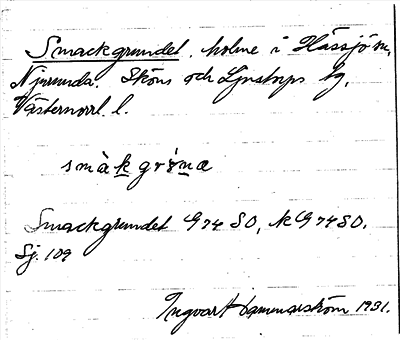 Smackgrundet, holme i Hässjö sn,
Njurunda. Sköns och Ljustorps tg,
Västernorrl. l.
smàkgrýnæ
Smackgrundet G 74 SO, NK G 74 SO.
Sj. 109
Ingvar Hammarström 1931.